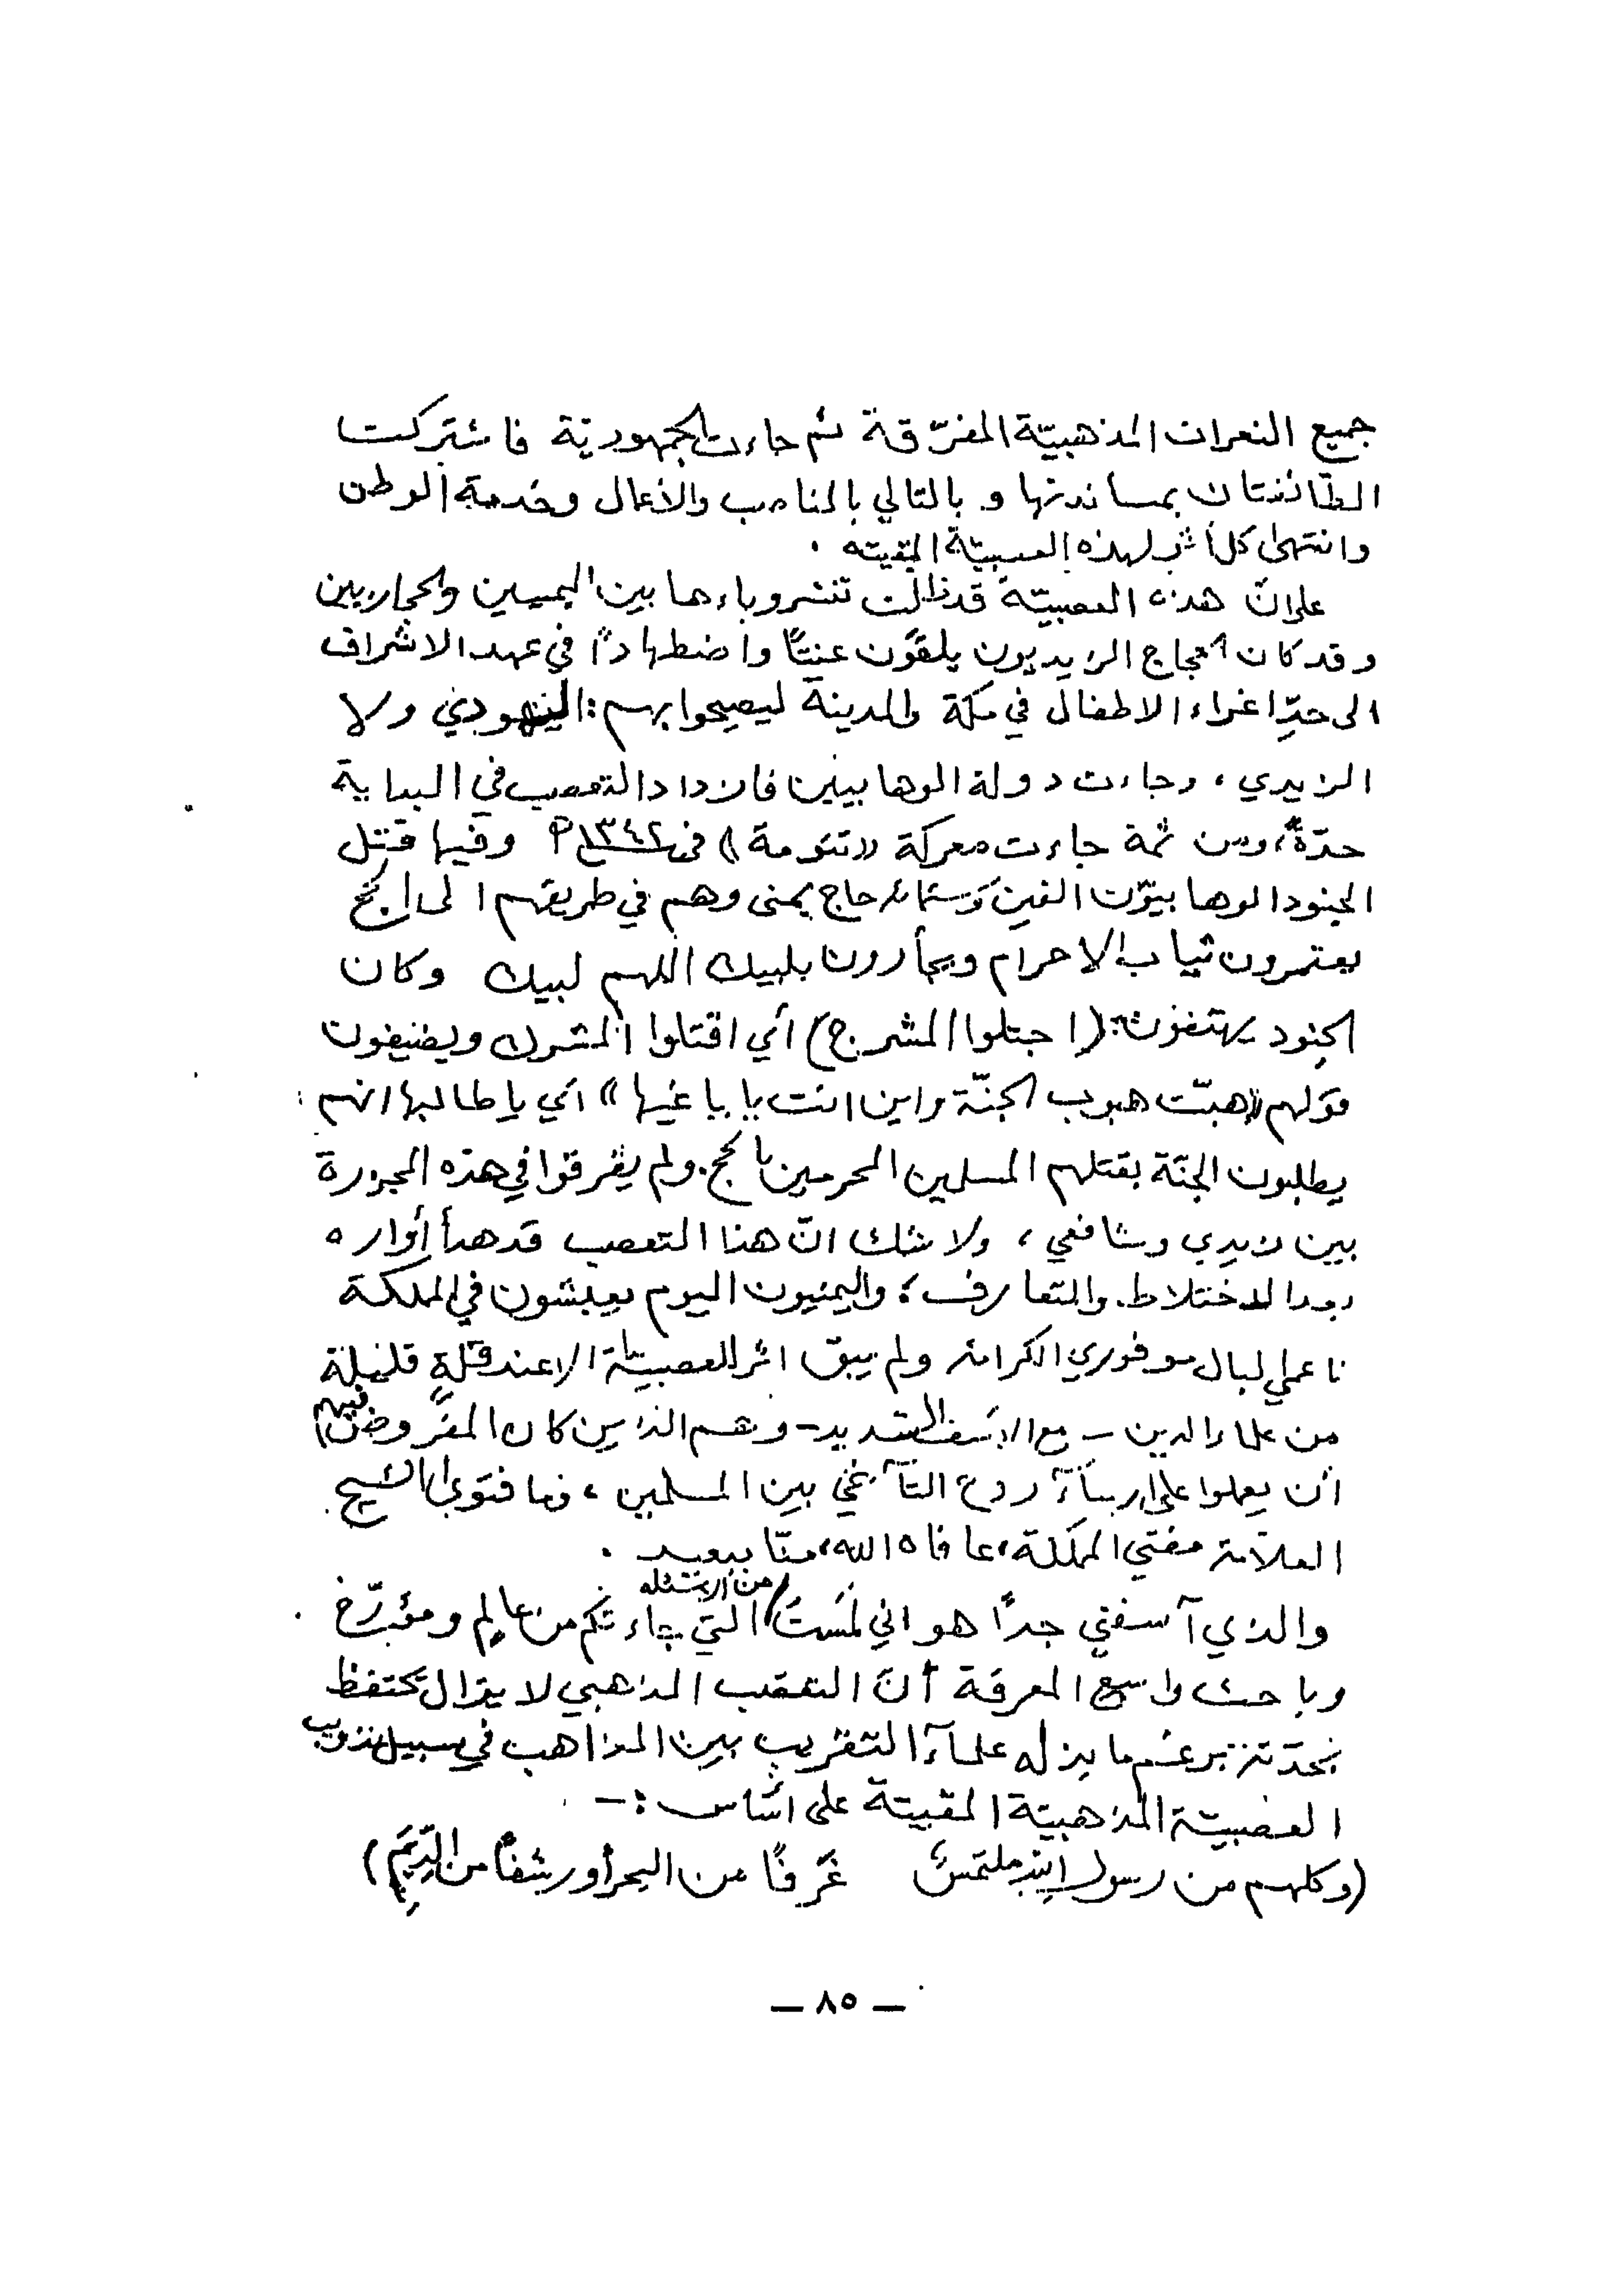 جميع النعرات المذهبيّة المفرّقة ثم جاءت الجمهوريّة فاشتركت
الطّائفتان بمساندتها و بالتالي بالمناصب والأعمال وخدمة الوطن
وانتهى كل أثر لهذه العصبيّة المقيته .
على انّ هذه العصبيّة قد ظلت تنشر وباءها بين اليمنيين والحجازيين
وقد كان الحجاج الزيديون يلقَون عنتًا واضطهادًا في عهد الاشراف
الى حدِّ اغراء الاطفال في مكة والمدينة ليصيحوا بهم : اليهودي ولا
الزيدي ، وجاءت دولة الوهابيين فازداد التعصب في البداية
حدّةً ، ومن ثمة جاءت معركة «تنومة» في ١٣٤٢ وفيها قتل
الجنود الوهابيّون الفين وستمائة حاج يمنى وهم في طريقهم الى الحج
يعتمرون ثياب الاحرام ويجأرون بلبيك اللهم لبيك وكان
الجنود يهتفون : (اجتلوا المشرج) أي اقتلوا المشرك ويضيفون
قولهم «هبّت هبوب الجنّة واين انت يا باغيها» أي يا طالبها انهم
يطلبون الجنّة بقتلهم المسلمين المحرمين بالحج . ولم يفرقوا في هذه المجزرة
بين زيدي وشافعي ، ولا شك انّ هذا التعصب قد هدأ أواره
بعد الاختلاط والتعارف ؛ واليمنيون اليوم يعيشون في المملكة
ناعمي البال موفوري الكرامة ولم يبق اثر للعصبيّة الا عند قلةٍ قليلة
من علماء الدين – مع الاسف الشديد – وهم الذين كان المفروض فيهم
أن يعملوا على ارساء روح التآخي بين المسلمين ، وما فتوى الشيخ
العلاّمة مفتي المملكة ، عافاه الله ، منّا ببعيد .
والذي آسفني جدًا هو اني لمست من الاسئله التي جاءتكم من عالم ومؤرّخ
وباحث واسع المعرفة أنّ التعصب المذهبي لا يزال يحتفظ
برغم ما بذله علماء التقريب بين المذاهب في سبيل تذويب
العصبيّة المذهبيّة المقيتة على اساس :-
(وكلهم من رسول الله ملتمسٌ غَرفًا من البحر أو رشفًا من الدِّيَمِ)
— ٨٥ —